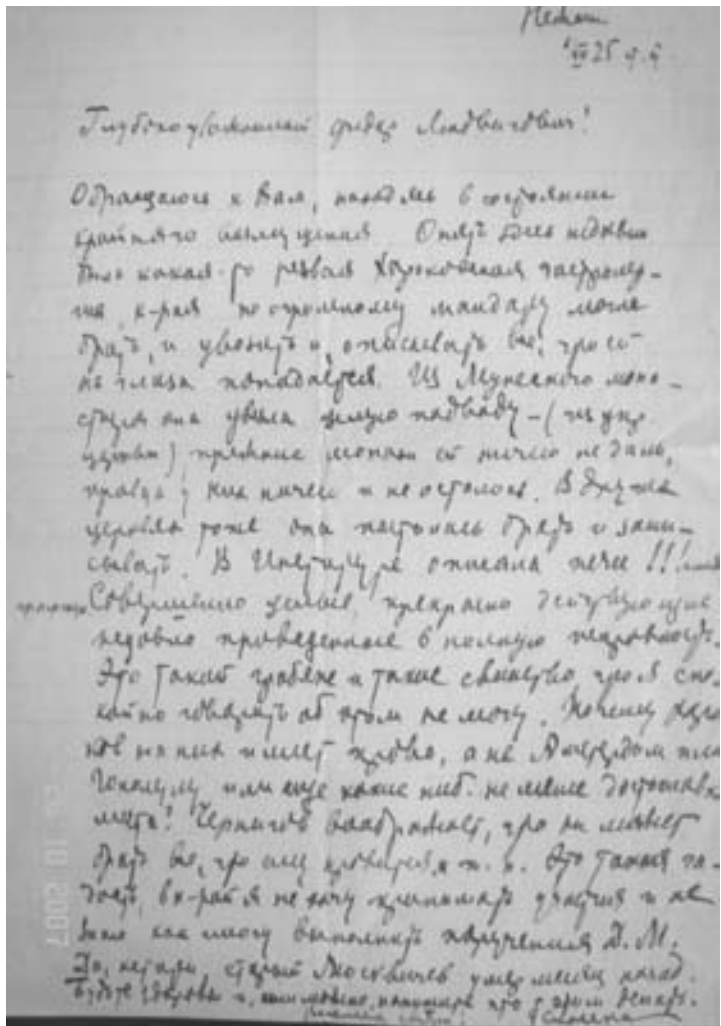 Нежин
VII 25 г.
Глубокоуважаемый Федор Людвигович!
Обращаюсь к Вам, находясь в состоянии
крайнего возмущения. Опять здесь недавно
была какая-то резвая Харьковская гастролер-
ша, к-рая по огромному мандату могла
брать, и увозить и описывать все, что ей
на глаза попадается. Из Мужского мона-
стыря она увезла целую подводу – (из укр.
) прежние монахи ей ничего не дали,
правда у них ничего и не осталось. В других
церквях тоже она пыталась брать и запи-
сывать. В Институте описала печи!!!
Совершенно целые, прекрасно действующие
недавно приведенные в полную исправность.
Это такой грабеж и такое свинство, что я спо-
койно говорить об этом не могу. Почему Харь-
ков на них имеет право, а не Амстердам или
Гонолулу или еще какие ниб. не менее достойные
места? Чернигов воображает, что он может
брать все, что ему нравится и т. п. Это такая га-
дость, в к-рой я не хочу принимать участия и не
знаю как могу выполнять поручения Д. М.
Да, кстати, старый Москвичев умер месяц назад.
Будьте здоровы и, если можно, напишите что с этим делать.
24 10 2007